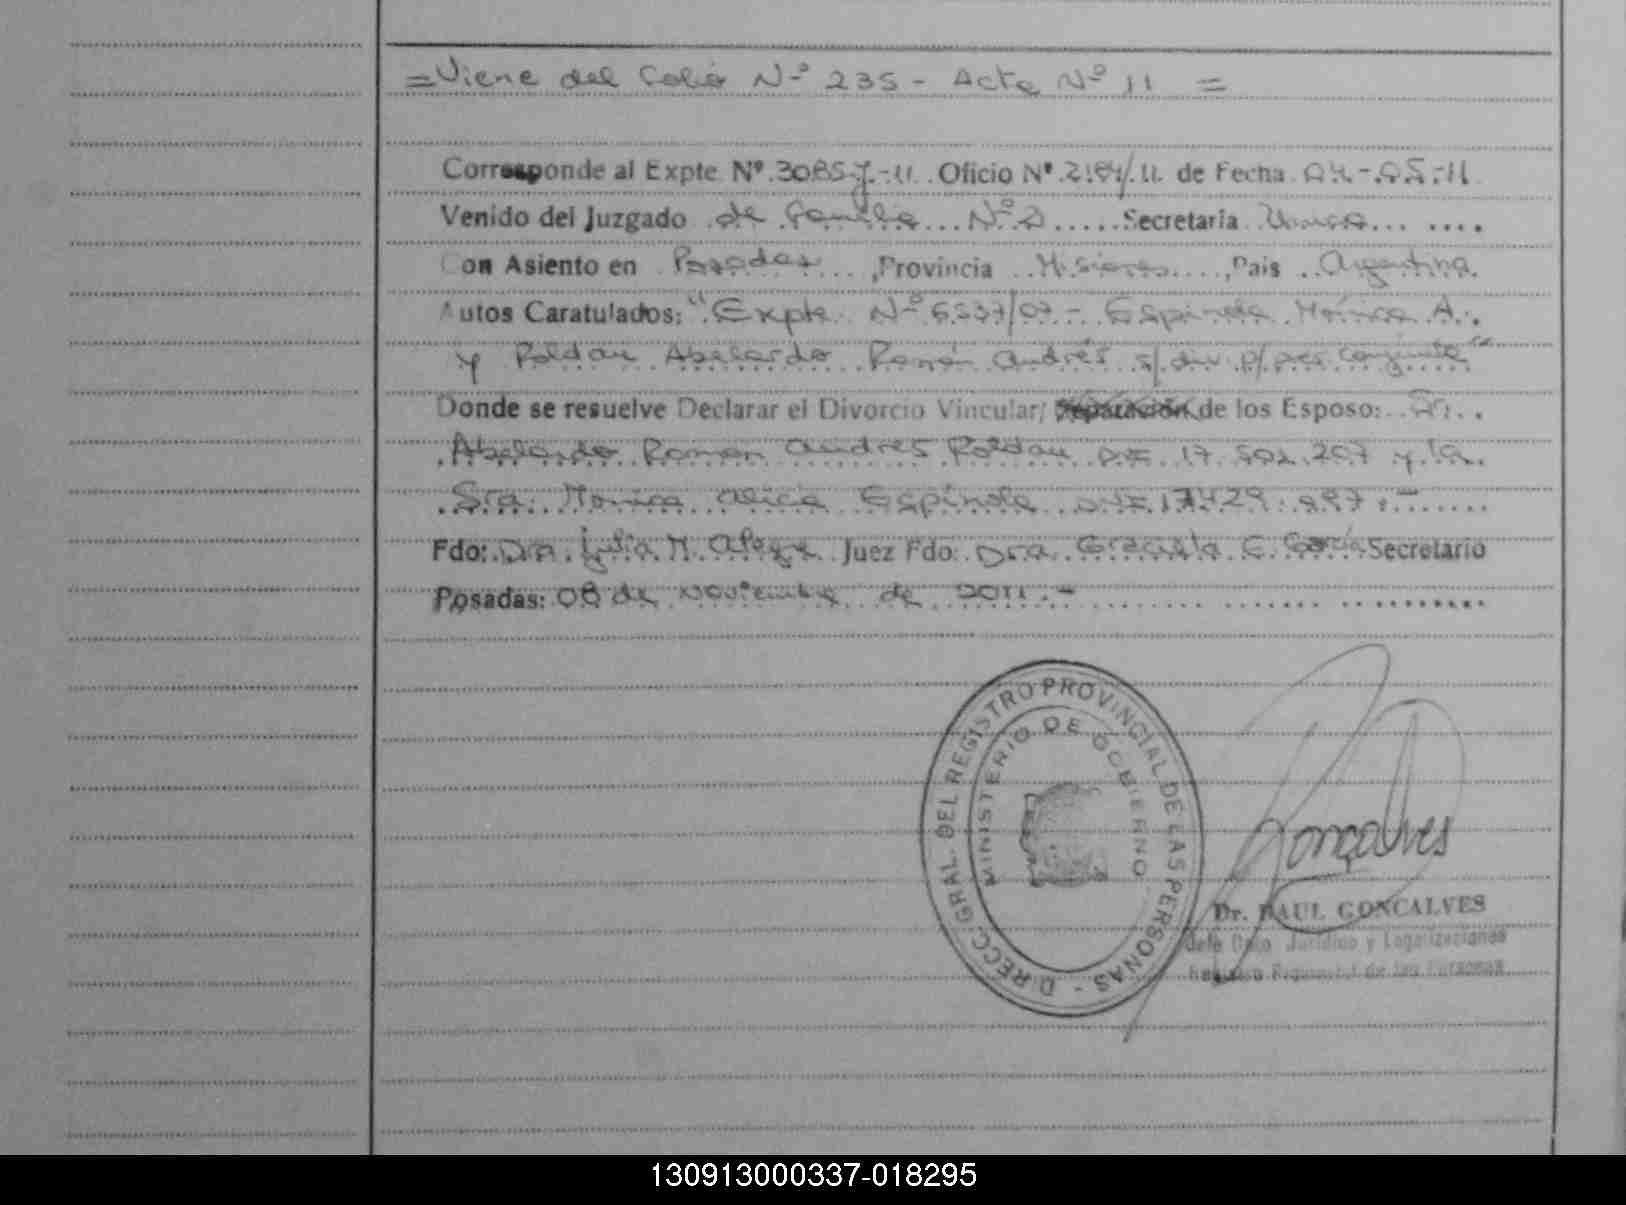 = Viene del Folio Nº 235 - Acta Nº 11 =
Corresponde al Expte Nº 3085-J-11 Oficio Nº 2191/11 de Fecha 04-05-11
Venido del Juzgado de Familia Nº 2 Secretaria Unica
Con Asiento en Posadas, Provincia Misiones, Pais Argentina.
Autos Caratulados: "Expte Nº 6537/07 - Espinola Mónica A.
y Roldan Abelardo Ramón Andrés s/ div. p/ pres. conjunta"
Donde se resuelve Declarar el Divorcio Vincular, Separación de los Esposo: Sr.
Abelardo Ramon Andres Roldan DNI 17.502.207 y la
Sra. Monica Alicia Espinola DNI 17.429.997.-
Fdo: Dra. Julia M. Juez Fdo: Dra. Graciela C. Secretario
Posadas: 08 de Noviembre de 2011.-
DIRECC. GRAL. DEL REGISTRO PROVINCIAL DE LAS PERSONAS -
MINISTERIO DE GOBIERNO
Gonçalves
Dr. RAUL GONCALVES
Jefe Dpto Jurídico y Legalizaciones
de las Personas
130913000337-018295